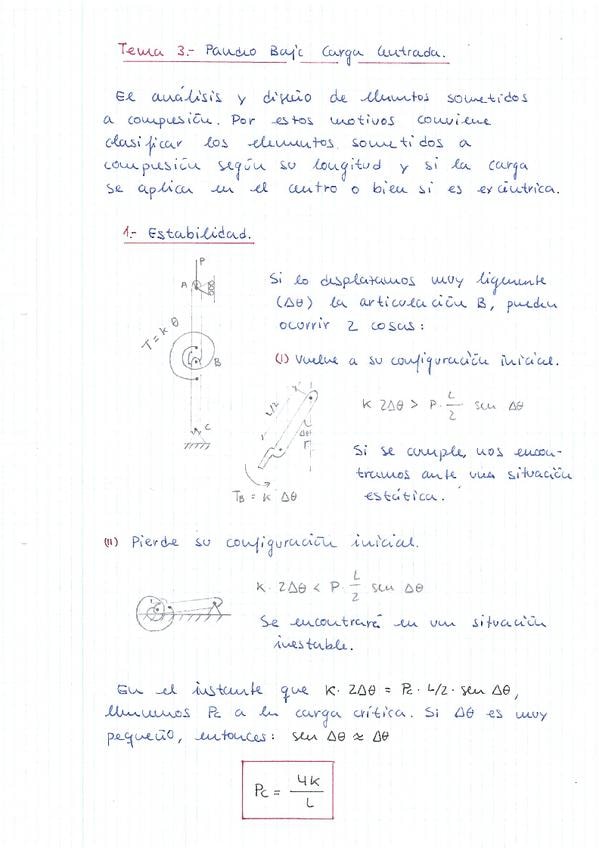 Tema 3.- Pandeo Bajo Carga Centrada.
El análisis y diseño de elementos sometidos
a compresión. Por estos motivos conviene
clasificar los elementos sometidos a
compresión según su longitud y si la carga
se aplica en el centro o bien si es excéntrica.
1.- Estabilidad.
P
A
T = K θ
B
C
Si lo desplazamos muy ligeramente
(Δθ) la articulación B, pueden
ocurrir 2 cosas:
(I) Vuelve a su configuración inicial.
L/2
Δθ
K 2Δθ > P · L/2 sen Δθ
Si se cumple, nos encon-
tramos ante una situación
estática.
TB = K Δθ
(II) Pierde su configuración inicial.
K · 2Δθ < P · L/2 sen Δθ
Se encontrará en una situación
inestable.
En el instante que K · 2Δθ = Pc · L/2 · sen Δθ,
llamamos Pc a la carga crítica. Si Δθ es muy
pequeño, entonces: sen Δθ ≈ Δθ
Pc = 4K/L